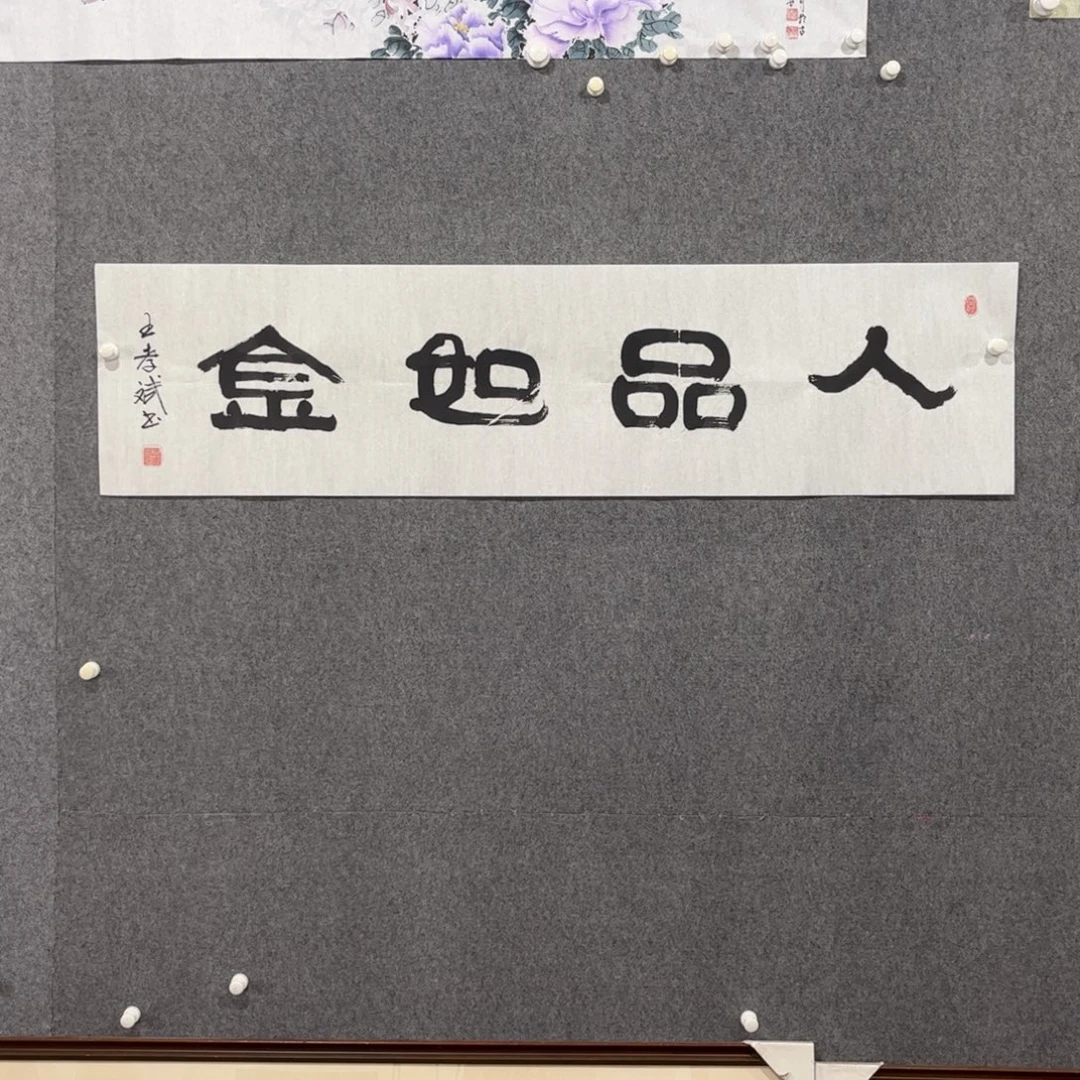 人品如金
王孝斌书